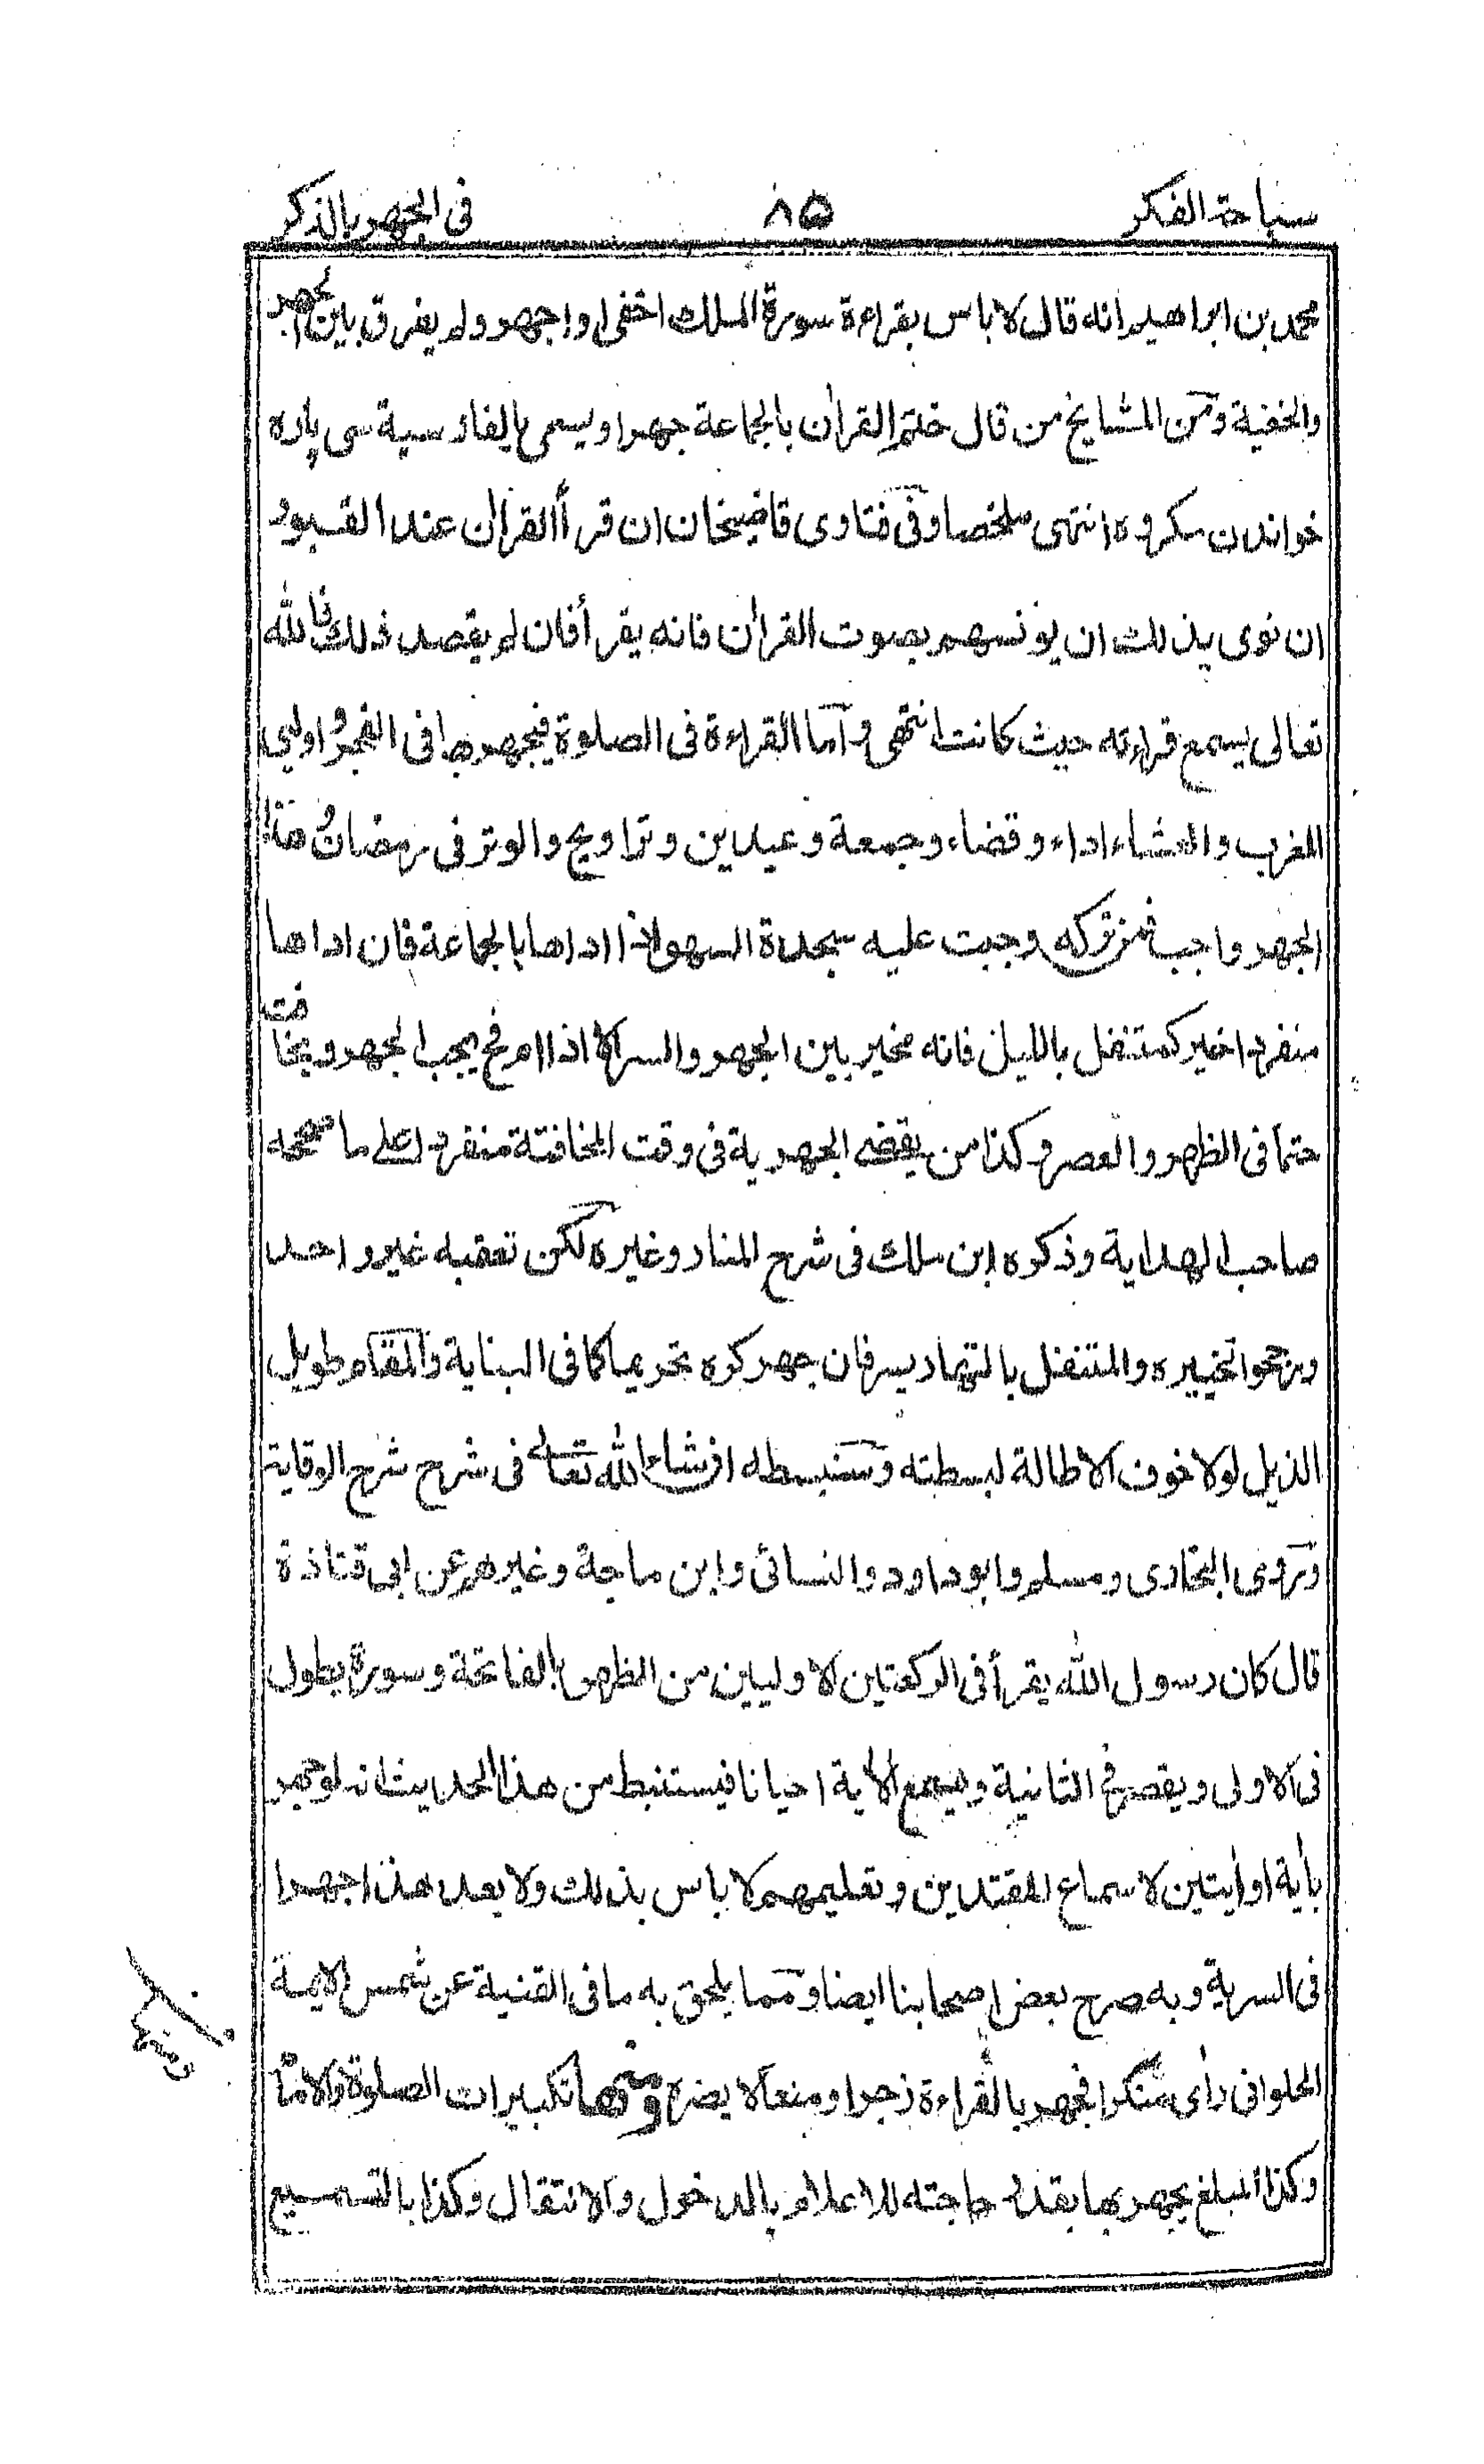 سباحة الفكر
٨٥
فى الجهر بالذكر
محمد بن ابراهيم انه قال لا باس بقراءة سورة الملك اخفى او اجهر ولم يفرق بين الجهر
والخفية ومن المشايخ من قال ختم القران بالجماعة جهرا ويسمى بالفارسية سى پاره
خواندن مكروه انتهى ملخصا وفى فتاوى قاضيخان ان قرأ القران عند القبور
ان نوى بذلك ان يونسهم بصوت القران فانه يقرأ فان لم يقصد ذلك فالله
تعالى يسمع قراءته حيث كانت انتهى واما القراءة فى الصلوة فيجهر بها فى الفجر واوليى
المغرب والعشاء اداء وقضاء وجمعة وعيدين وتراويح والوتر فى رمضان وهذا
الجهر واجب فمن تركه وجبت عليه سجدة السهو لاذا اداها بالجماعة فان اداها
منفردا خير كمتنفل بالليل فانه مخير بين الجهر والسر الا اذا ام فح يجب الجهر ويخافت
حتما فى الظهر والعصر وكذا من يقضى الجهرية فى وقت المخافتة منفردا على ما صححه
صاحب الهداية وذكره ابن ملك فى شرح المنار وغيره لكن تعقبه غير واحد
ورجحوا تخييره والمتنفل بالنهار يسر فان جهر كره تحريما كما فى البناية والمقام طويل
الذيل لولا خوف الاطالة لبسطته وسنبسطه ان شاء الله تعالى فى شرح شرح الوقاية
وروى البخارى ومسلم وابو داود والنسائى وابن ماجة وغيرهم عن ابى قتادة
قال كان رسول الله يقرأ فى الركعتين الاوليين من الظهر بالفاتحة وسورة يطول
فى الاولى ويقصر فى الثانية ويسمع الاية احيانا فيستنبط من هذا الحديث انه لو جهر
باية او ايتين لاسماع المقتدين وتعليمهم لا باس بذلك ولا يعد هذا جهرا
فى السرية وبه صرح بعض اصحابنا ايضا ومما يلحق به ما فى القنية عن شمس الايمة
الحلوانى راى منكرا فجهر بالقراءة زجرا ومنعا لا يضره ومنها تكبيرات الصلوة فالامام
وكذا المبلغ يجهر بها بقدر حاجته للاعلام بالدخول والانتقال وكذا بالتسميع